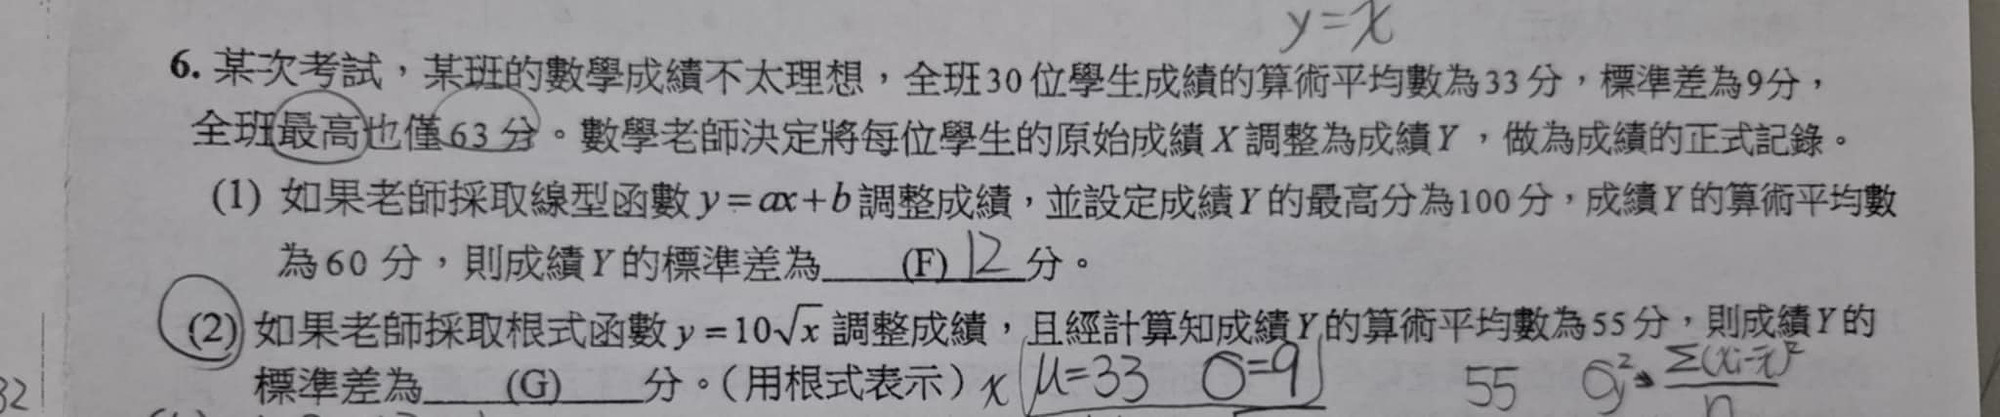 y=x
6. 某次考試，某班的數學成績不太理想，全班30位學生成績的算術平均數為33分，標準差為9分，
全班最高也僅63分。數學老師決定將每位學生的原始成績X調整為成績Y，做為成績的正式記錄。
(1) 如果老師採取線型函數y=ax+b調整成績，並設定成績Y的最高分為100分，成績Y的算術平均數
為60分，則成績Y的標準差為 (F) 12 分。
(2) 如果老師採取根式函數y=10√x調整成績，且經計算知成績Y的算術平均數為55分，則成績Y的
標準差為 (G) 分。（用根式表示） x μ=33 σ=9 55 σy²=Σ(xi-x̄)²/n
32